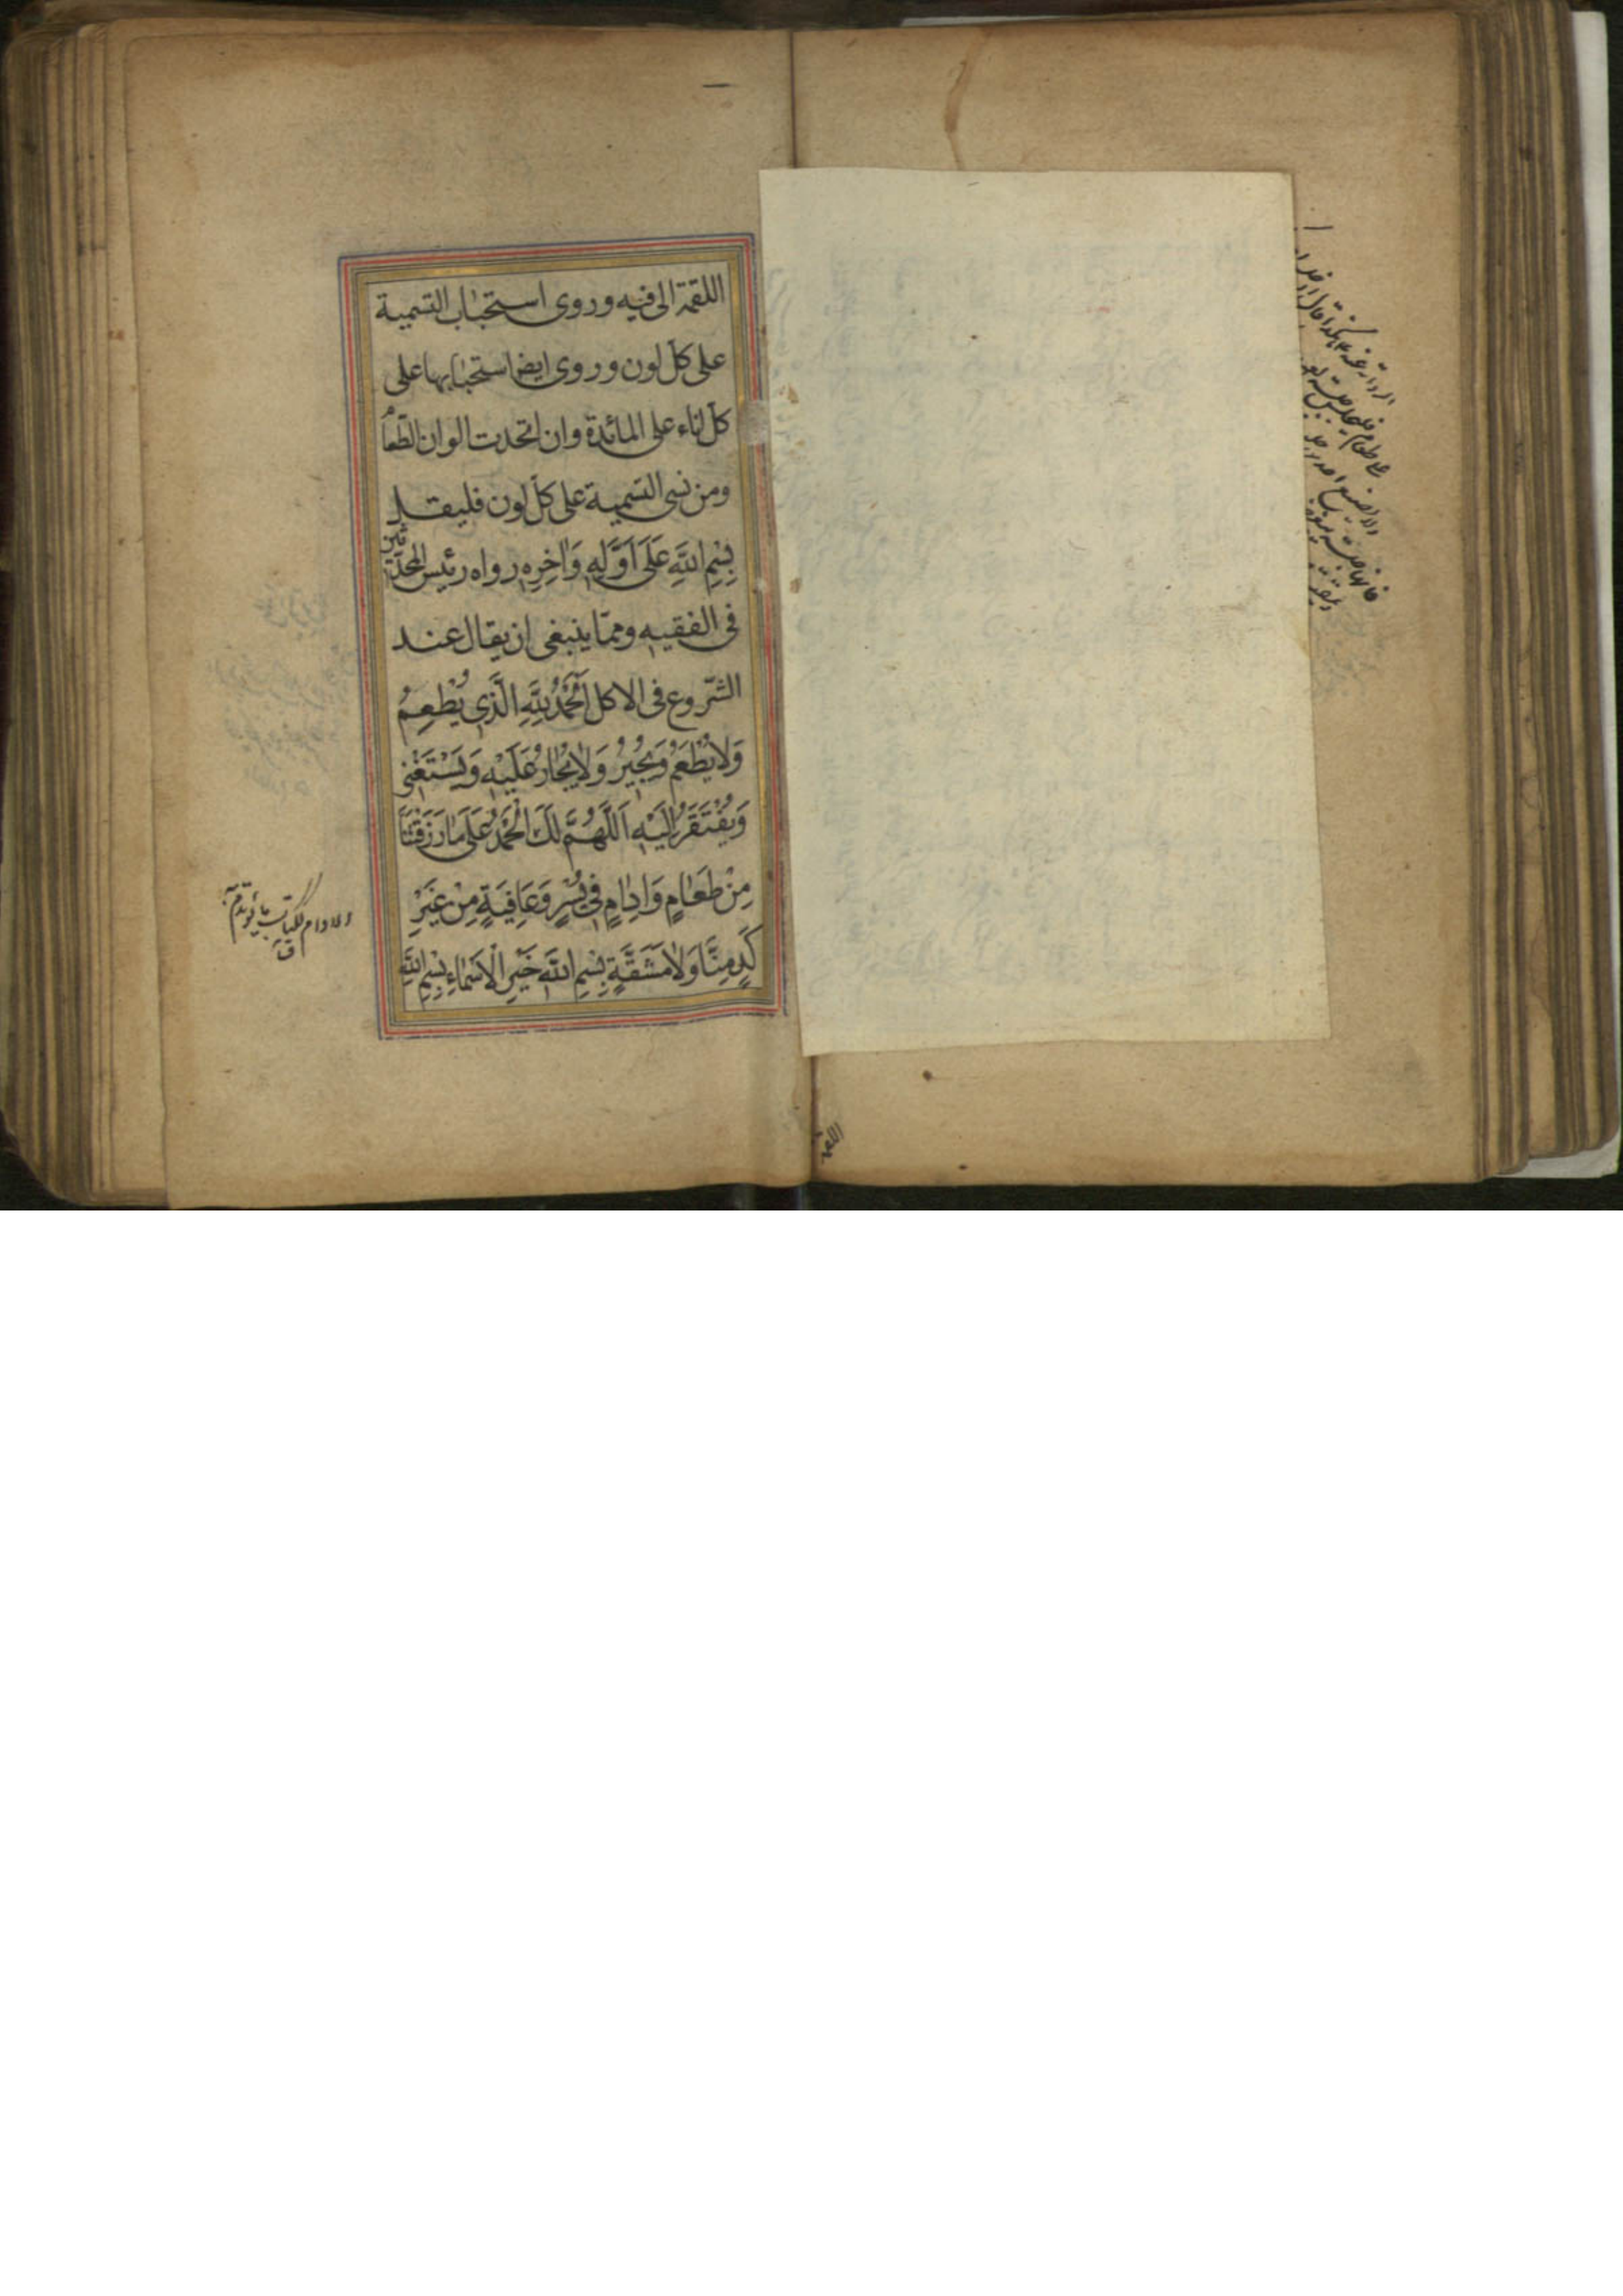 اللقمة الى فيه وروى استحباب التسمية
على كلّ لون وروى ايضا استحبابها على
كلّ اناء على المائدة وان اتحدت الوان الطّعام
ومن نسى التسمية على كلّ لون فليقل
بِسْمِ اللهِ عَلَى اَوَّلِهِ وَاٰخِرِهِ رواه رئيس المحدّثين
فى الفقيه وممّا ينبغى ان يقال عند
الشّروع فى الاكل اَلْحَمْدُ لِلّٰهِ الَّذِى يُطْعِمُ
وَلا يُطْعَمُ وَيُجِيرُ وَلاٰ يُجٰارُ عَلَيْهِ وَيَسْتَغْنِى
وَيُفْتَقَرُ اِلَيْهِ اَللّٰهُمَّ لَكَ الْحَمْدُ عَلَى مٰا رَزَقْتَنٰا
مِنْ طَعٰامٍ وَاِدٰامٍ فِى يُسْرٍ وَعٰافِيَةٍ مِنْ غَيْرِ
كَدٍّ مِنّٰا وَلاٰ مَشَقَّةٍ بِسْمِ اللهِ خَيْرِ الْاَسْمٰاءِ بِسْمِ اللهِ
الادام ككتاب ما يؤتدم به
ق
اللقمة